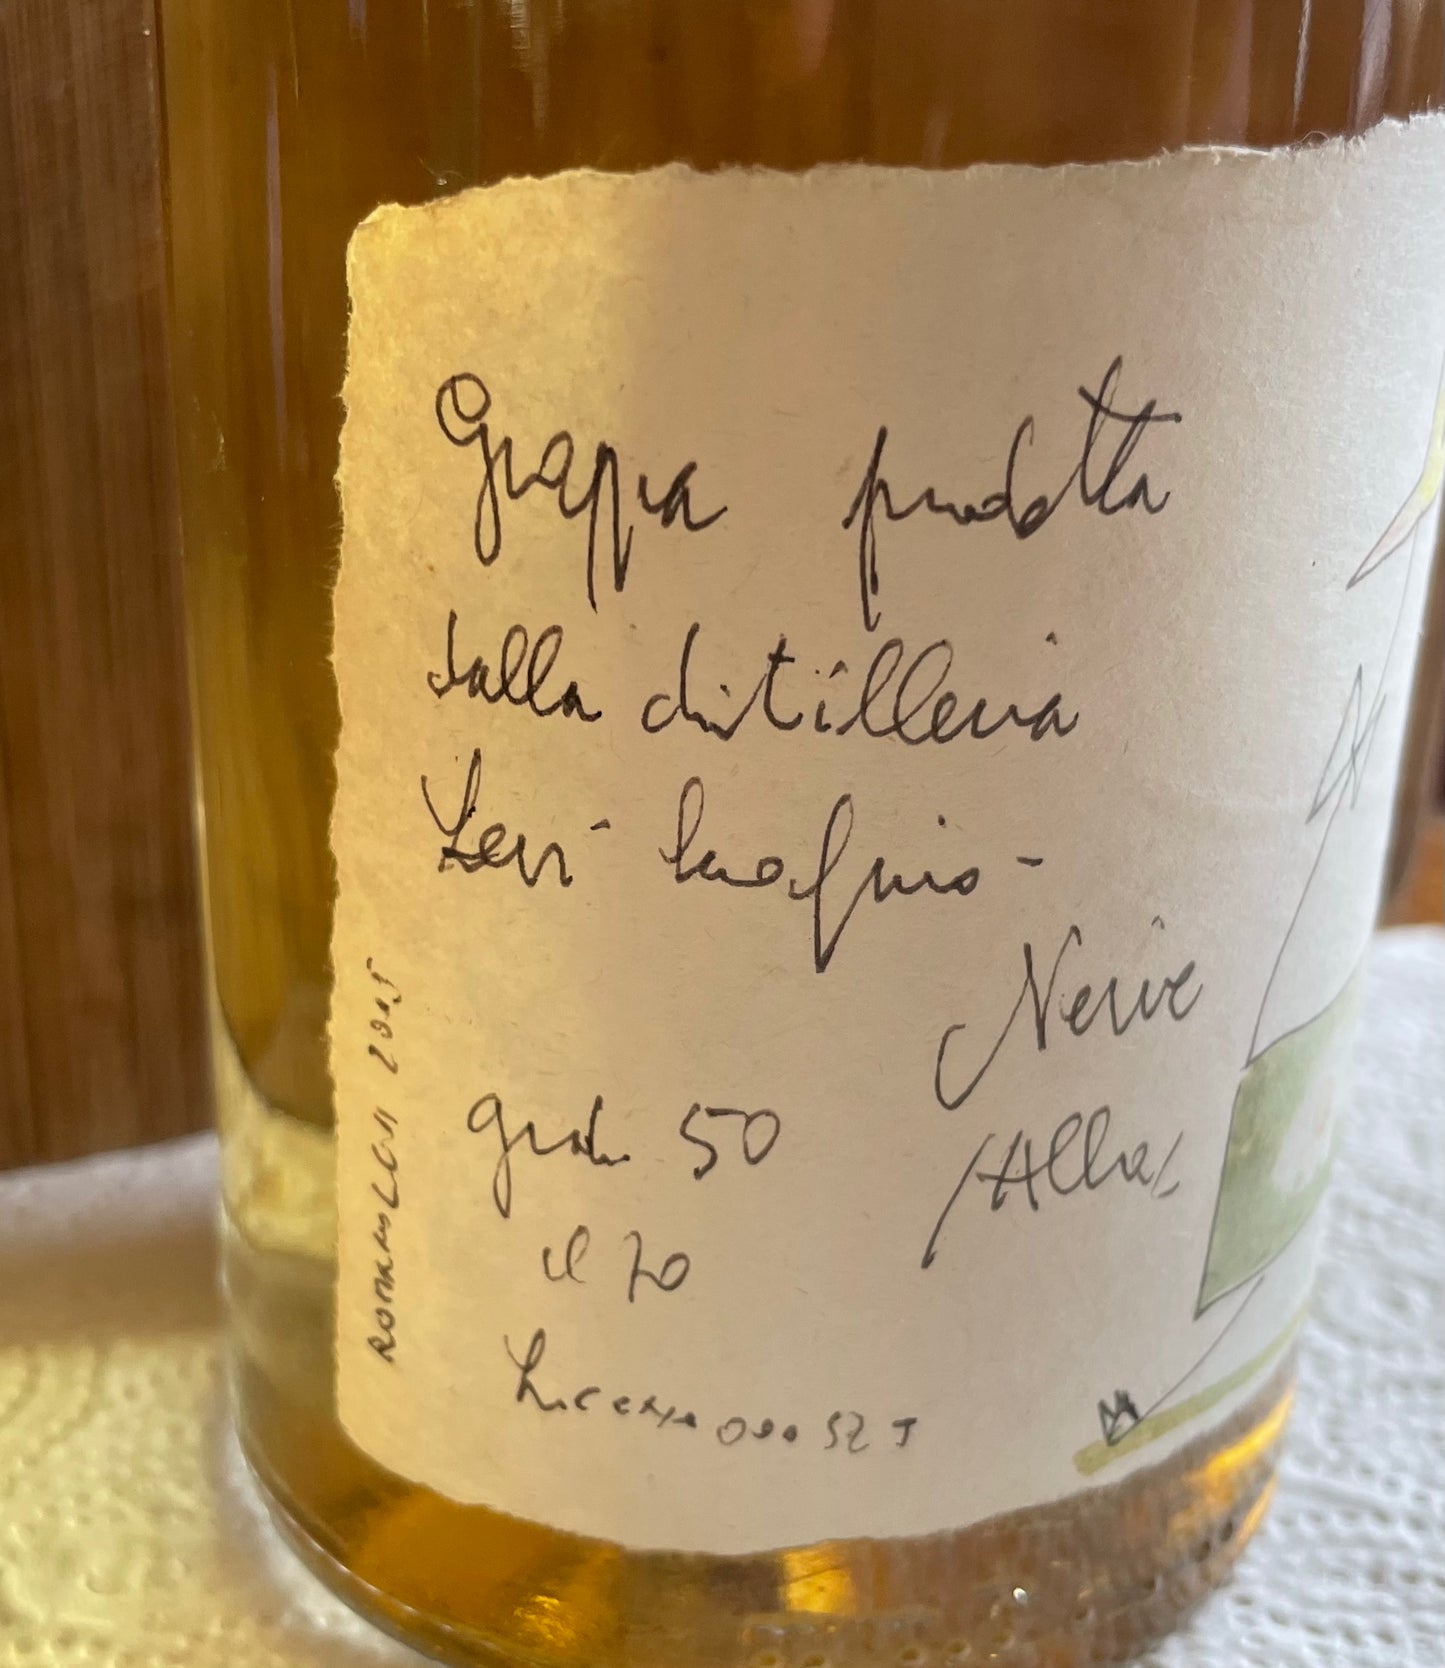 Grappa prodotta
dalla distilleria
Levi Serafino -
Neive
/Alba/
gradi 50
cl 70
Licenza
ROMANO LEVI 2005